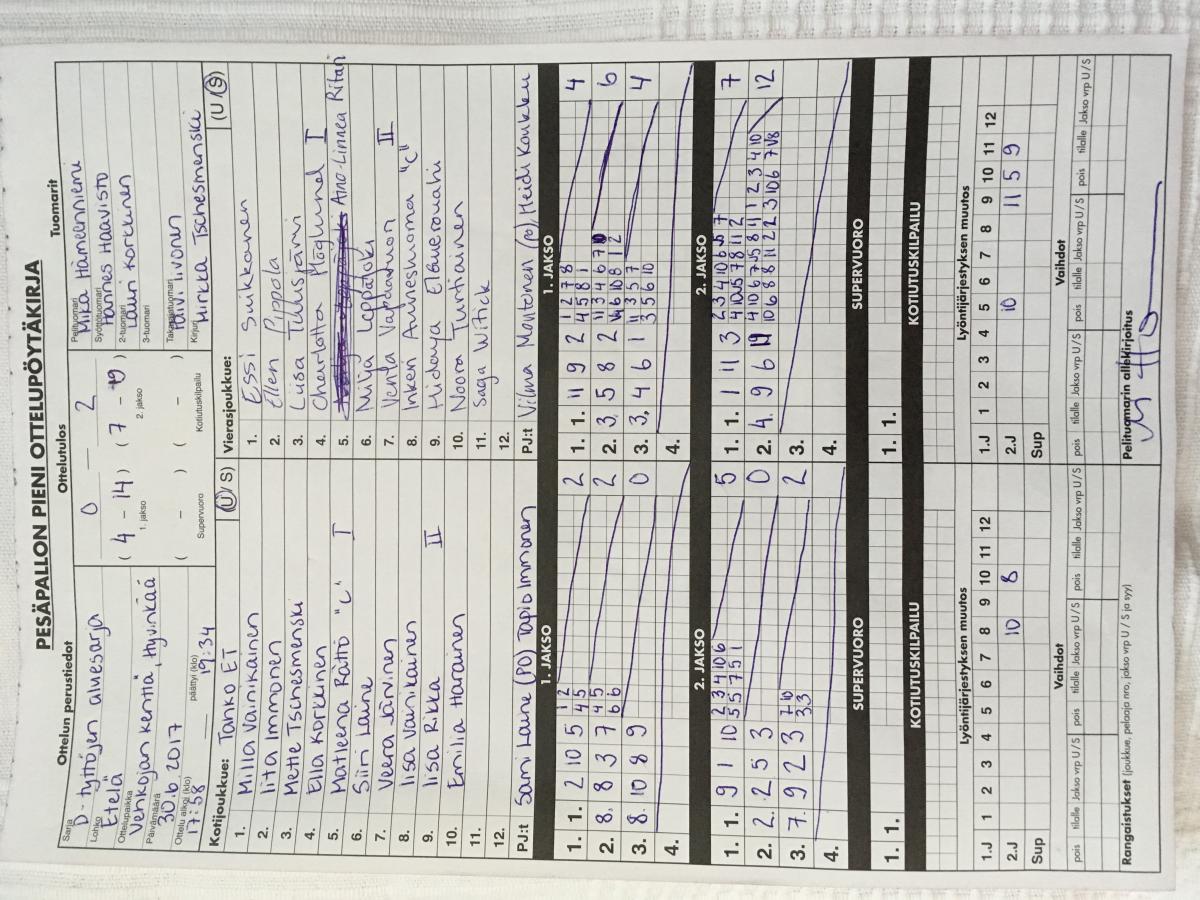 PESÄPALLON PIENI OTTELUPÖYTÄKIRJA
Ottelun perustiedot
Sarja
D-tyttöjen aluesarja
Lohko
Etelä
Ottelupaikka
Vehkojan kenttä, Hyvinkää
Päivämäärä
30.6.2017
Ottelu alkoi (klo)
17:58
päättyi (klo)
19:34
Ottelutulos
0 — 2
( 4 - 14 ) ( 7 - 19 )
1. jakso 2. jakso
( - ) ( - )
Supervuoro Kotiutuskilpailu
Tuomarit
Pelituomari
Mika Hämeenniemi
Syöttötuomari
Hannes Haavisto
2-tuomari
Lauri Korkkinen
3-tuomari
Takarajatuomari
Päivi Iivonen
Kirjuri
Mirkca Tschesmenski
Kotijoukkue: Tahko ET (U/S)
1. Milla Vainikainen
2. Iita Immonen
3. Mette Tschesmenski
4. Ella Korkkinen
5. Matleena Rättö "C" I
6. Siiri Laine
7. Veera Järvinen
8. Iisa Vainikainen
9. Iisa Rikka II
10. Emilia Harainen
11.
12.
PJ:t Sami Laine (PO) Tapio Immonen
Vierasjoukkue: (U/S)
1. Essi Suikkanen
2. Ellen Pippola
3. Liisa Tuulisjärvi
4. Charlotta Höglund I
5. Aino-Linnea Ritari
6. Milja Leppäjoki
7. Venla Vapaavuori II
8. Inkeri Aunesluoma "C"
9. Hidaya Elbuerouahi
10. Noora Tuntiainen
11. Saga Witick
12.
PJ:t Vilma Montonen (PO), Heidi Koukku
1. JAKSO
1. 1. 2 10 5 1 2 2
4 5
2. 8. 8 3 7 4 5 2
6 6
3. 8. 10 8 9 0
4.
2. JAKSO
1. 1. 9 1 10 2 3 4 10 6 5
5 5 7 5 1
2. 2. 2 5 3 0
3. 7. 9 2 3 7 10 2
3 3
4.
SUPERVUORO
1. 1.
KOTIUTUSKILPAILU
Lyöntijärjestyksen muutos
1.J 1 2 3 4 5 6 7 8 9 10 11 12
2.J 10 8
Sup
Vaihdot
pois tilalle Jakso vrp U/S pois tilalle Jakso vrp U/S pois tilalle Jakso vrp U/S
Rangaistukset (joukkue, pelaaja nro, jakso vrp U / S ja syy)
1. JAKSO
1. 1. 11 9 2 1 2 7 8 4
4 5 8 1
2. 3. 5 8 2 6
3. 3. 4 6 1 1 3 5 7 4
3 5 6 10
4.
2. JAKSO
1. 1. 1 11 3 2 3 4 10 6 5 7 7
4 10 5 7 8 11 2
2. 4. 9 6 12
3.
4.
SUPERVUORO
1. 1.
KOTIUTUSKILPAILU
Lyöntijärjestyksen muutos
1.J 1 2 3 4 5 6 7 8 9 10 11 12
2.J 10 11 5 9
Sup
Vaihdot
pois tilalle Jakso vrp U/S pois tilalle Jakso vrp U/S pois tilalle Jakso vrp U/S
Pelituomarin allekirjoitus